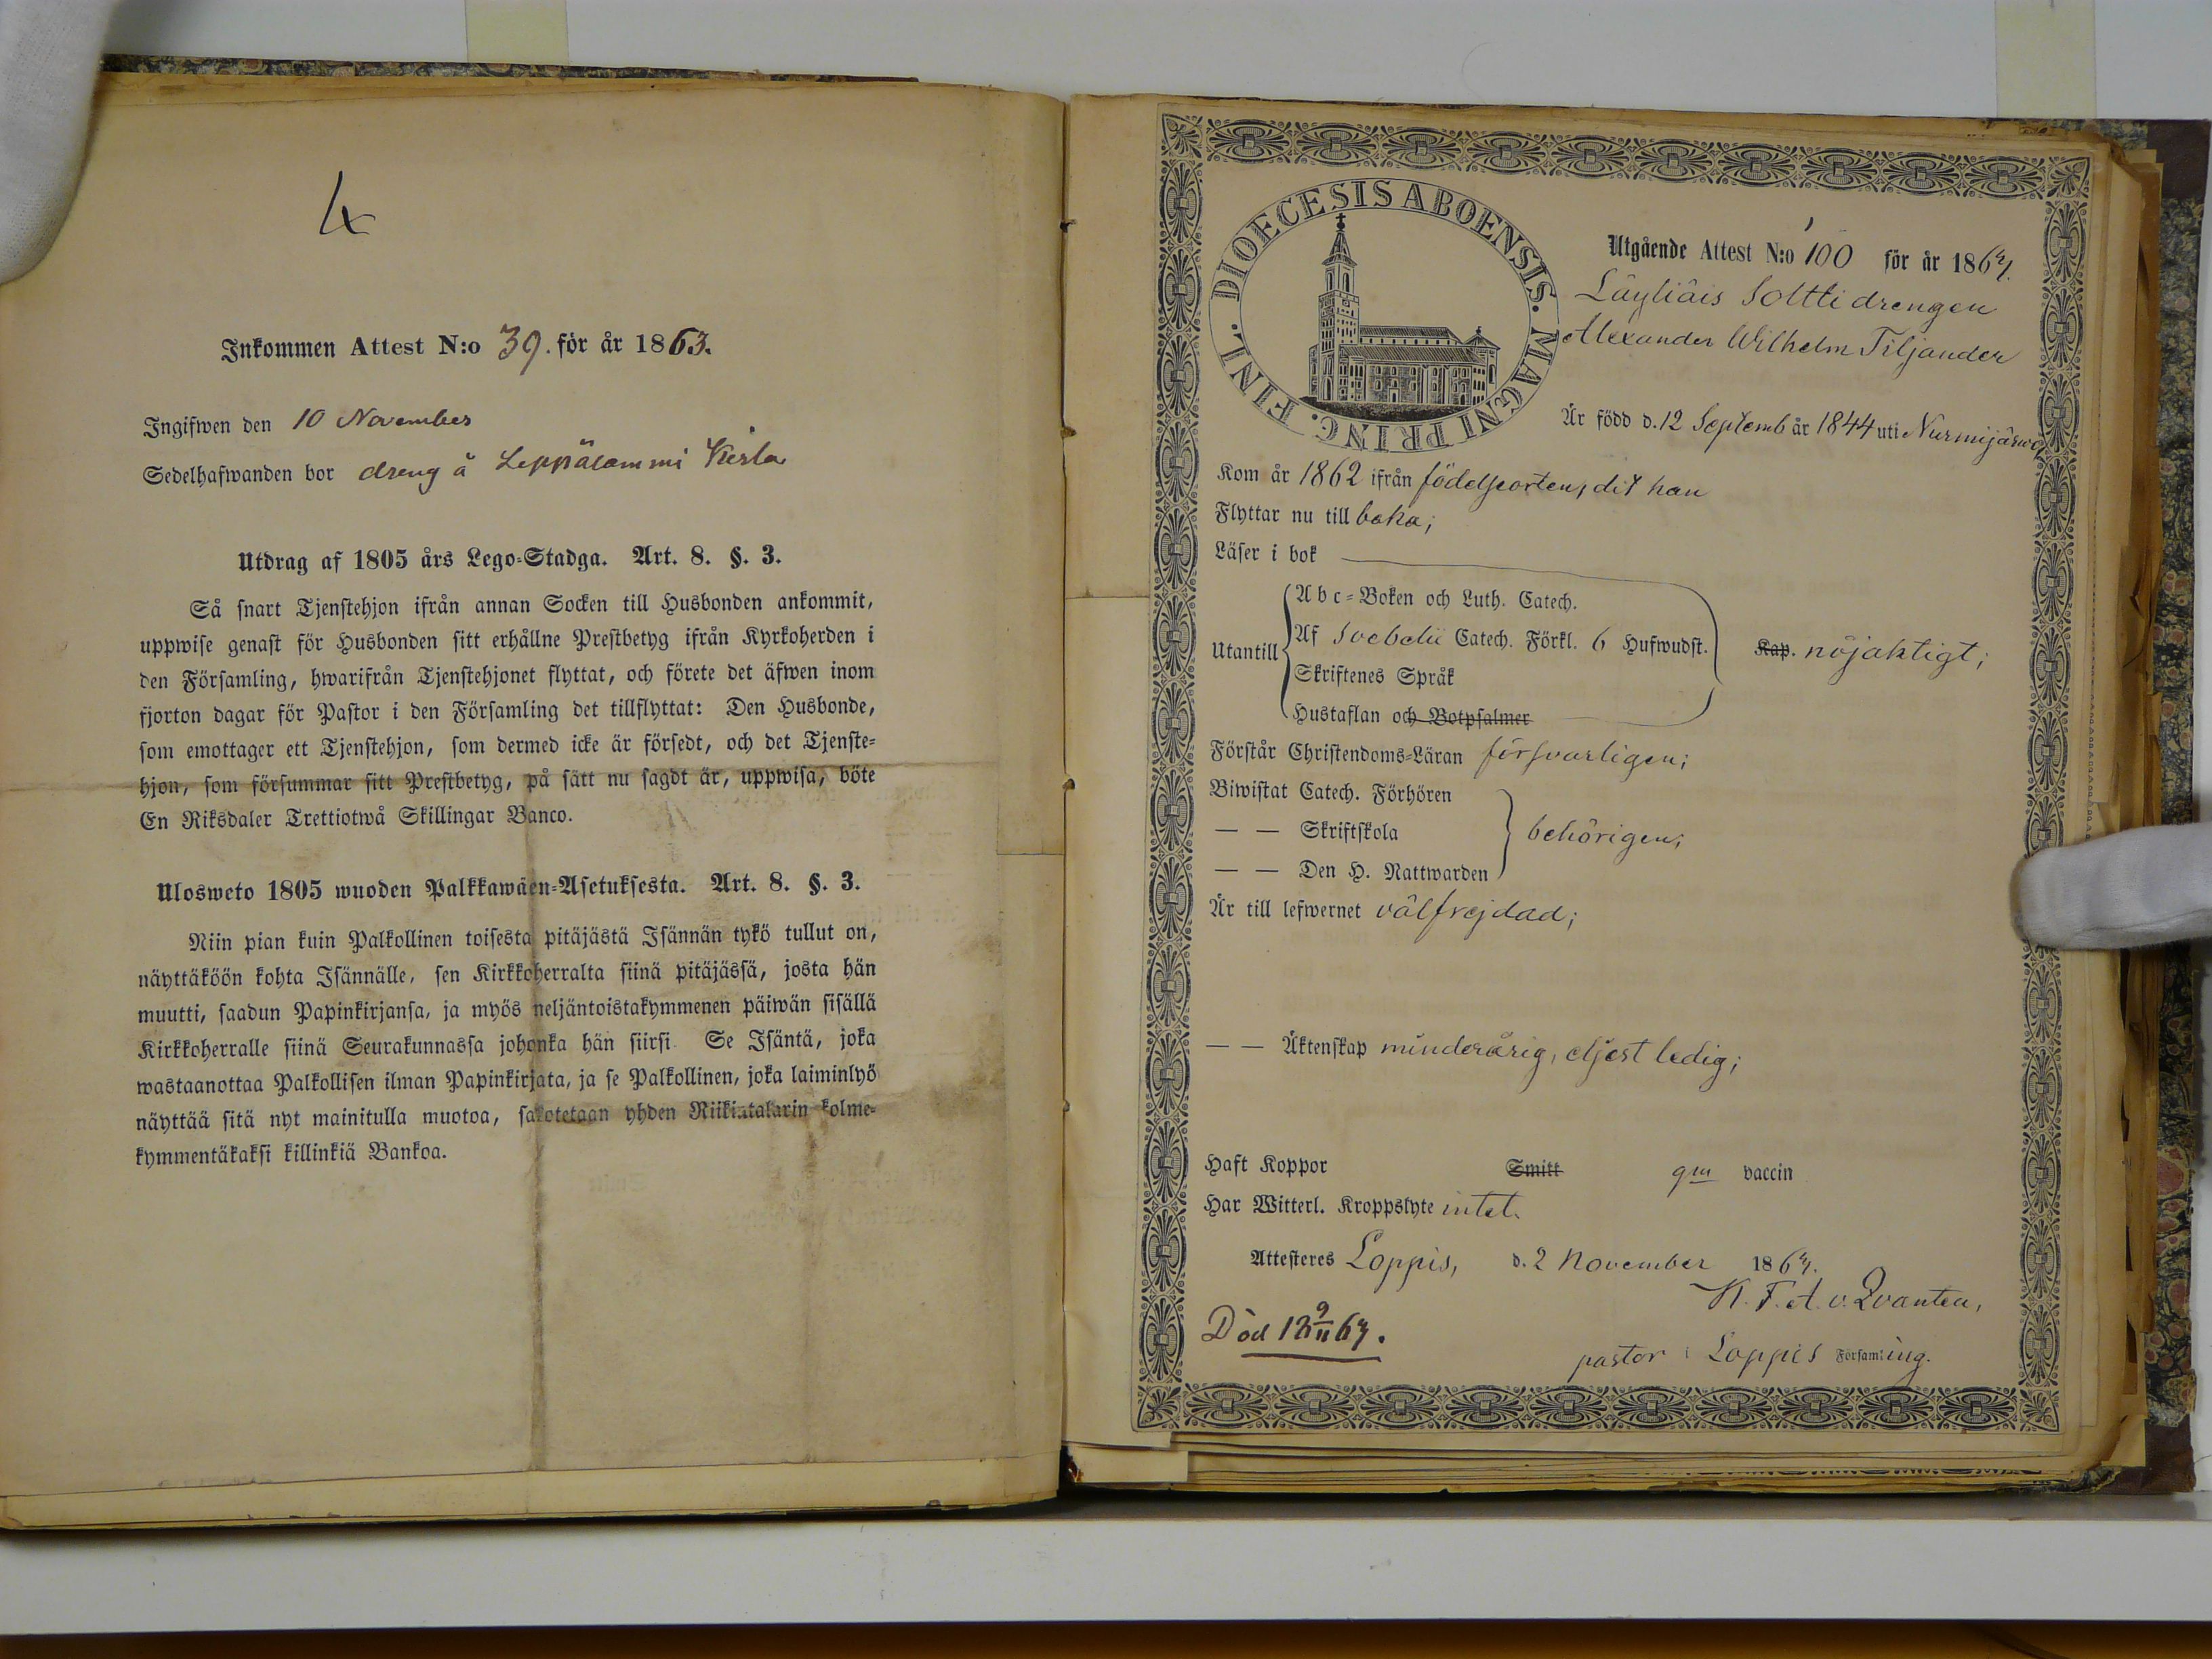 Inkommen Attest N:o 39. för år 1863.
Ingifwen den 10 November
Sedelhafwanden bor dreng å Leppälammi
Utdrag af 1805 års Lego-Stadga. Art. 8. §. 3.
Så snart Tjenstehjon ifrån annan Socken till Husbonden ankommit,
uppwise genast för Husbonden sitt erhållne Prestbetyg ifrån Kyrkoherden i
den Församling, hwarifrån Tjenstehjonet flyttat, och förete det äfwen inom
fjorton dagar för Pastor i den Församling det tillflyttat: Den Husbonde,
som emottager ett Tjenstehjon, som dermed icke är försedt, och det Tjenste-
hjon, som försummar sitt Prestbetyg, på sätt nu sagdt är, uppwisa, böte
En Riksdaler Trettiotwå Skillingar Banco.
Ulosweto 1805 wuoden Palkkawäen-Asetuksesta. Art. 8. §. 3.
Niin pian kuin Palkollinen toisesta pitäjästä Isännän tykö tullut on,
näyttäköön kohta Isännälle, sen Kirkkoherralta siinä pitäjässä, josta hän
muutti, saadun Papinkirjansa, ja myös neljäntoistakymmenen päiwän sisällä
Kirkkoherralle siinä Seurakunnassa johonka hän siirsi. Se Isäntä, joka
wastaanottaa Palkollisen ilman Papinkirjata, ja se Palkollinen, joka laiminlyö
näyttää sitä nyt mainitulla muotoa, sakotetaan yhden Riikintalarin kolme-
kymmentäkaksi killinkiä Bankoa.
DIOECESIS ABOENSIS. MAGNI PRINC. FINL.
Utgående Attest N:o 100 för år 1863.
Läyliäis Soltti drengen
Alexander Wilhelm Tiljander
Är född d. 12 Septemb år 1844 uti Nurmijärwi,
Kom år 1862 ifrån födelseorten, dit han
Flyttar nu till baka;
Läser i bok
Abc-Boken och Luth. Catech.
Utantill Af Svebelii Catech. Förkl. 6 Hufwudst. Kap. nöjaktigt;
Skriftenes Språk
Hustaflan och Botpsalmer
Förstår Christendoms-Läran försvarligen;
Biwistat Catech. Förhören
— — Skriftskola behörigen;
— — Den H. Nattwarden
Är till lefwernet välfrejdad;
— — Äktenskap minderårig, eljest ledig;
Haft Koppor Smitt gm vaccin
Har Witterl. Kroppslyte intet.
Attesteres Loppis, d. 2 November 1863.
K. F. A. v. Qvanten,
Död 18 9/11 63.
pastor i Loppis Församling.